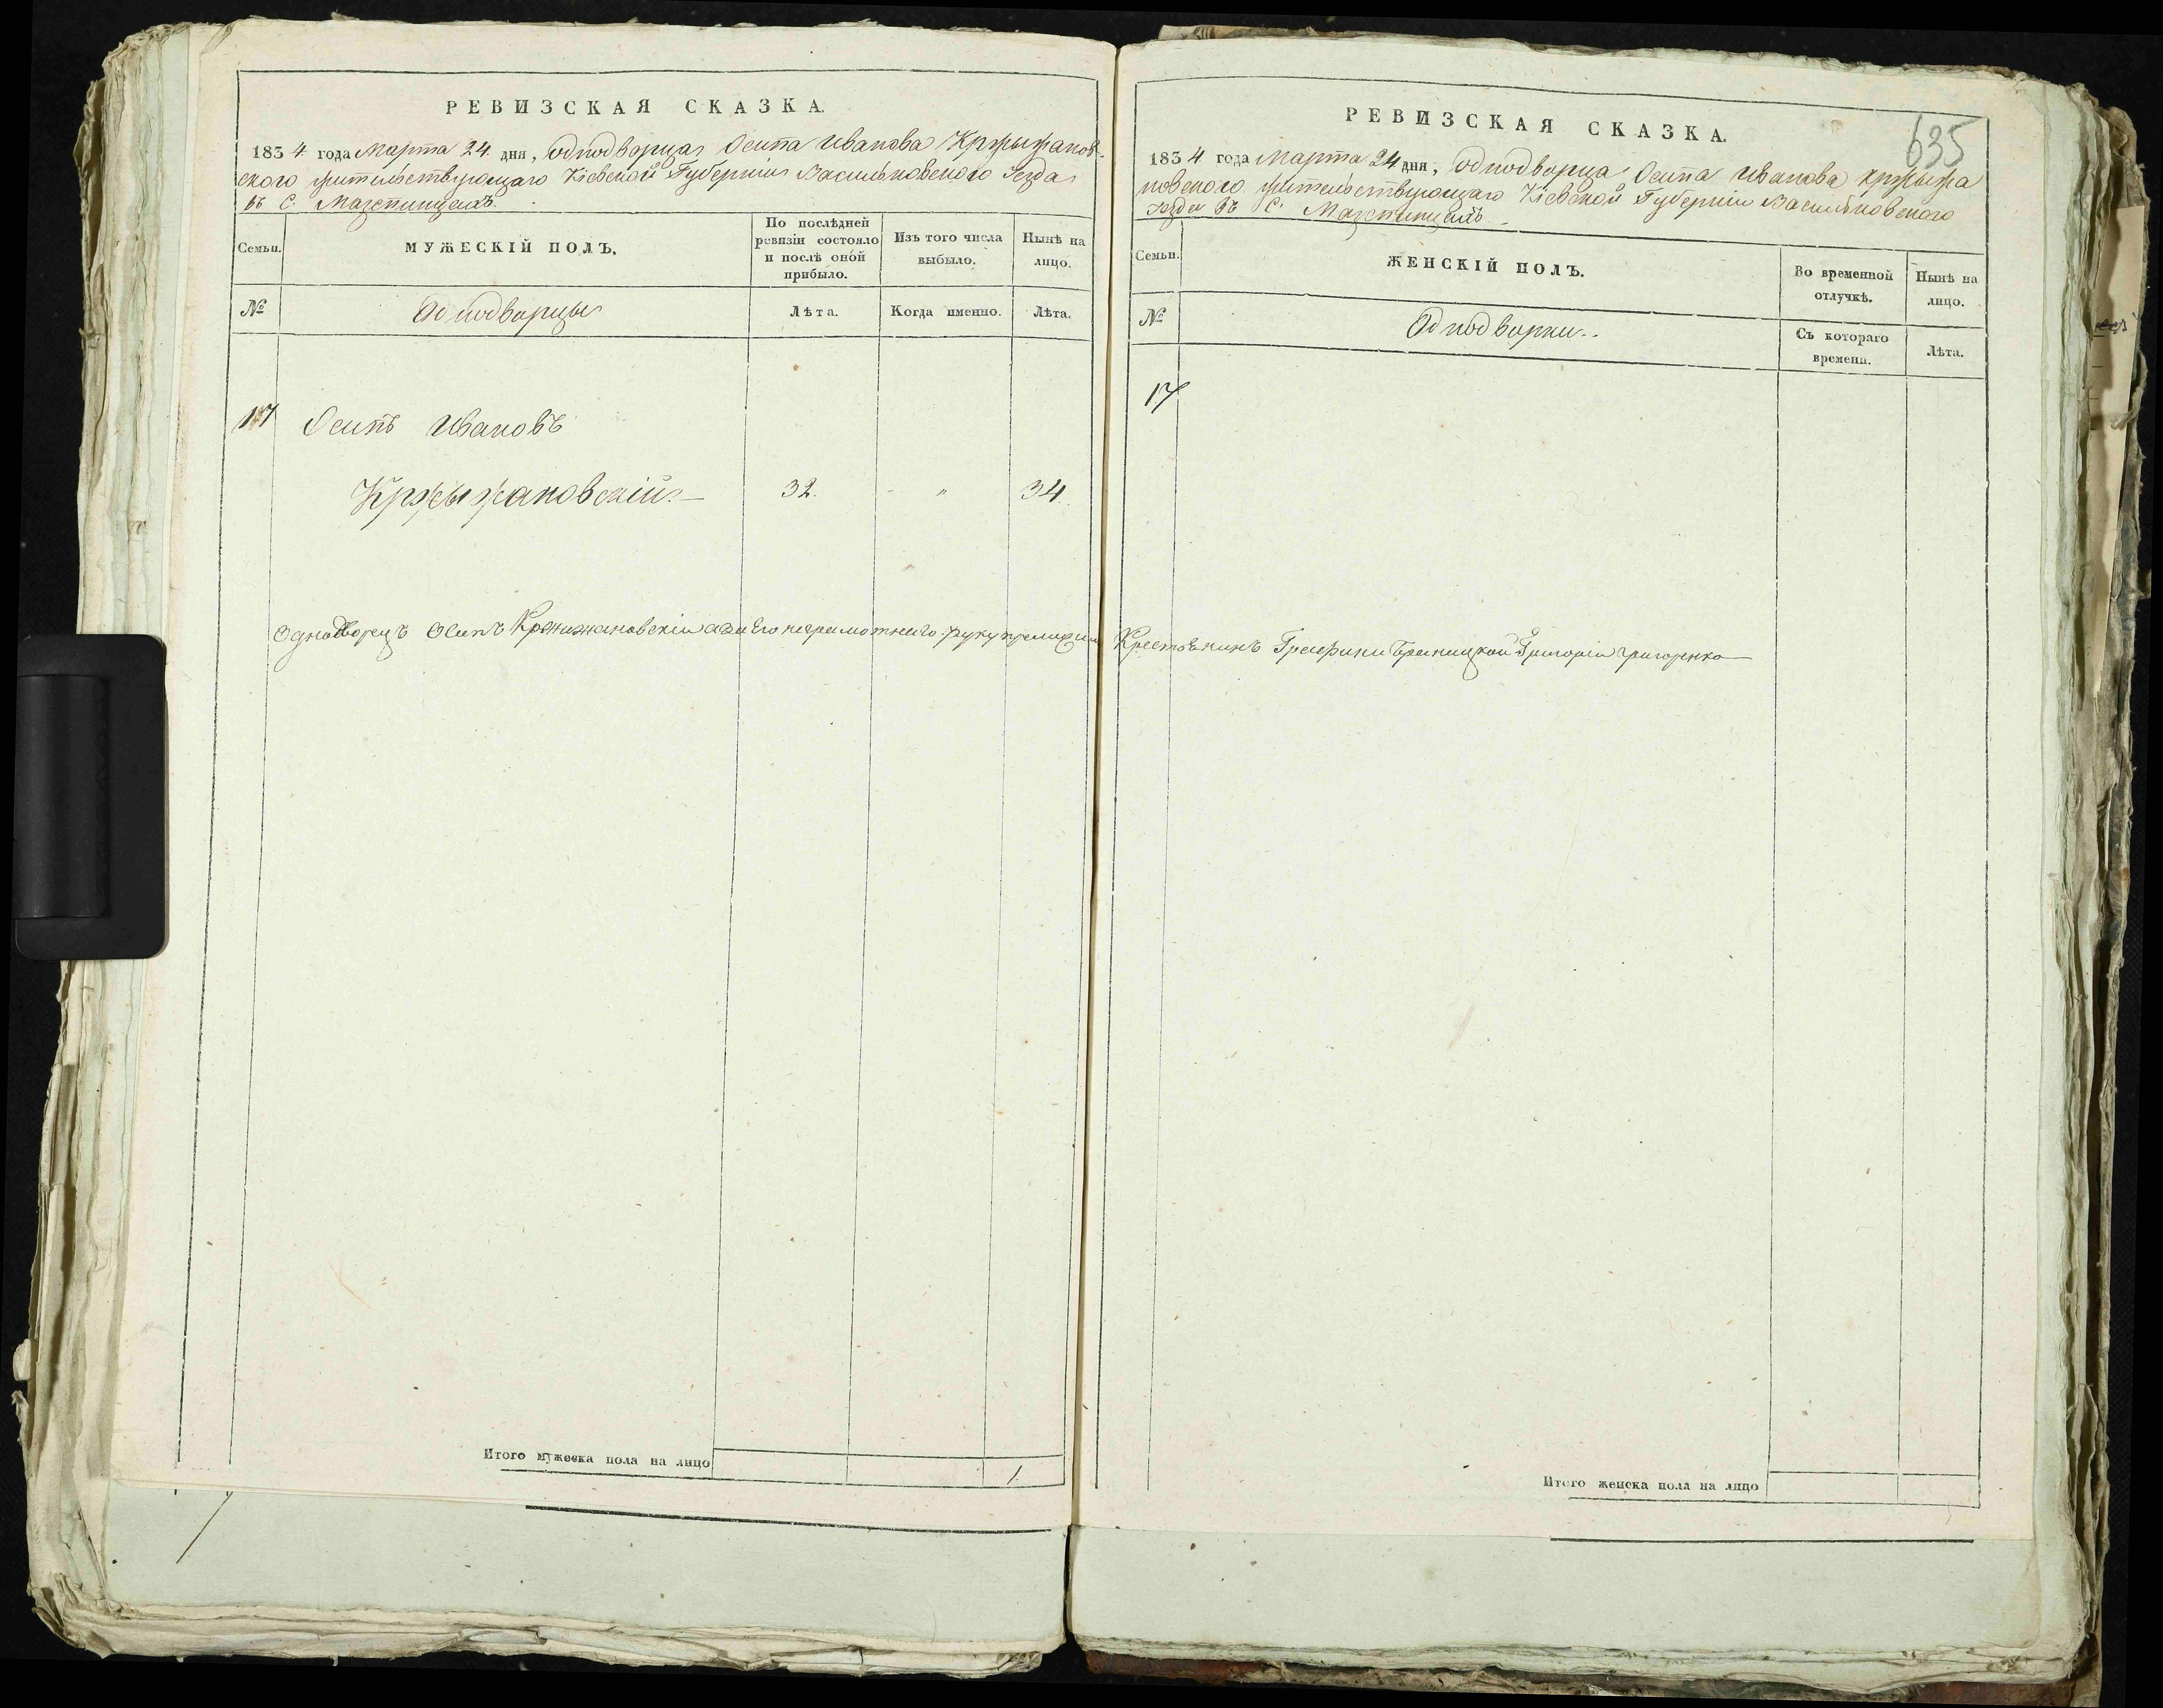 РЕВИЗСКАЯ СКАЗКА.
1834 года Марта 24 дня, Однодворца Осипа Иванова Кржыжанов-
ского жительствующаго Кіевской Губерніи Васильковскаго Уезда
въ С.
Семьи.
МУЖЕСКІЙ ПОЛЪ.
По послѣдней
ревизіи состояло
и послѣ оной
прибыло.
Изъ того числа
выбыло.
Нынѣ на
лицо.
№
Однодворцы
Лѣта.
Когда именно.
Лѣта.
17 Осипъ Ивановъ
Кржыжановскій 32. - " 34.
Однодворецъ Осипъ Кржижановскій а за Его неграмотнаго руку приложил
Итого мужеска пола на лицо
1
635
РЕВИЗСКАЯ СКАЗКА.
1834 года Марта 24 дня, Однодворца Осипа Иванова Кржыжа
новского жительствующаго Кіевской Губерніи Васильковского
Уезда въ С.
Семьи.
ЖЕНСКІЙ ПОЛЪ.
Во временной
отлучкѣ.
Нынѣ на
лицо.
№
Однодворки
Съ котораго
времени.
Лѣта.
17
Крестьянинъ Графини Браницкой Григорій Григоренко
Итого женска пола на лицо